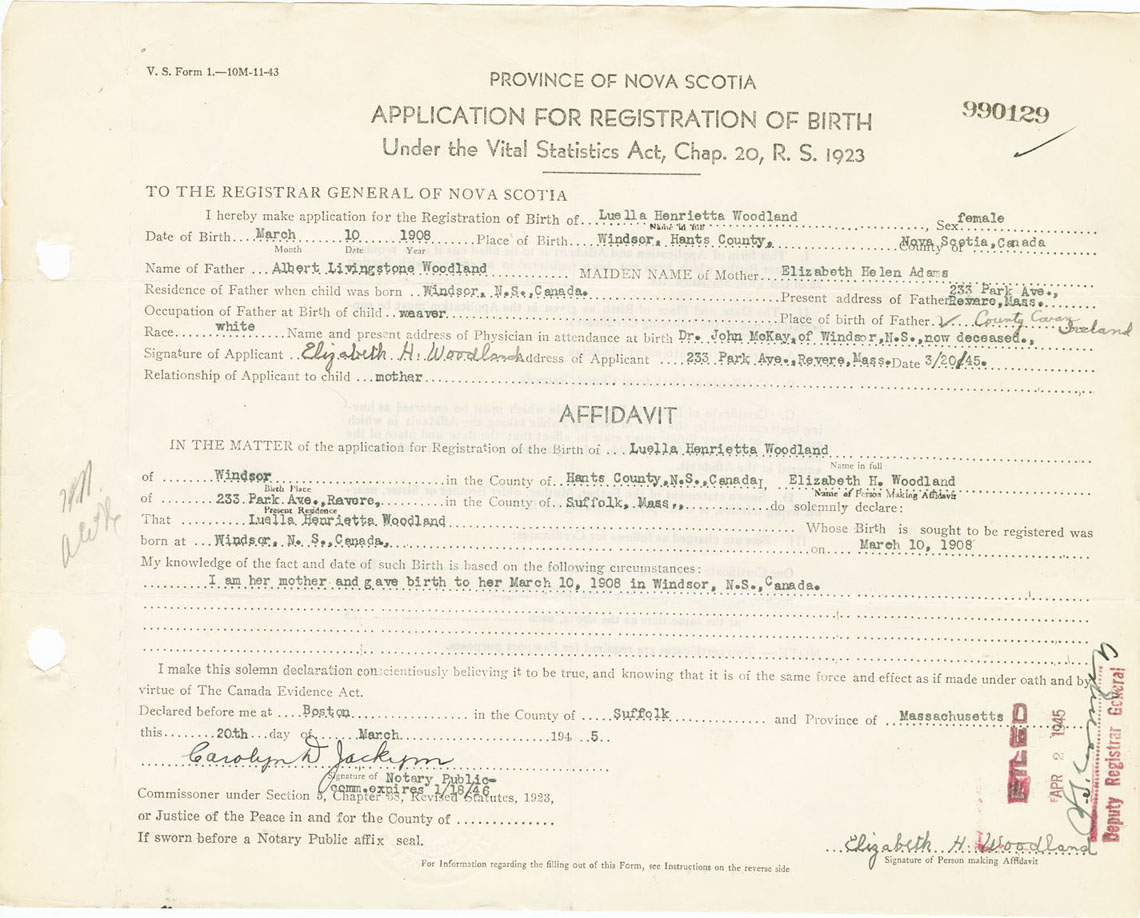 V. S. Form 1.—10M-11-43
PROVINCE OF NOVA SCOTIA
APPLICATION FOR REGISTRATION OF BIRTH
990129
Under the Vital Statistics Act, Chap. 20, R. S. 1923
TO THE REGISTRAR GENERAL OF NOVA SCOTIA
I hereby make application for the Registration of Birth of Luella Henrietta Woodland, Sex female
Name in full
Date of Birth March 10 1908 Place of Birth Windsor, Hants County, County of Nova Scotia, Canada
Month Date Year
Name of Father Albert Livingstone Woodland MAIDEN NAME of Mother Elizabeth Helen Adams
Residence of Father when child was born Windsor, N.S., Canada. Present address of Father 233 Park Ave., Revere, Mass.
Occupation of Father at Birth of child weaver Place of birth of Father ✓ County Cavan Ireland
Race white Name and present address of Physician in attendance at birth Dr. John McKay, of Windsor, N.S., now deceased.,
Signature of Applicant Elizabeth H. Woodland Address of Applicant 233 Park Ave., Revere, Mass. Date 3/20/45.
Relationship of Applicant to child mother
AFFIDAVIT
IN THE MATTER of the application for Registration of the Birth of Luella Henrietta Woodland
Name in full
of Windsor in the County of Hants County, N.S., Canada, I, Elizabeth H. Woodland
Birth Place Name of Person Making Affidavit
of 233 Park Ave., Ravere, in the County of Suffolk, Mass., do solemnly declare:
Present Residence
That Luella Henrietta Woodland Whose Birth is sought to be registered was
born at Windsor, N. S., Canada, on March 10, 1908
My knowledge of the fact and date of such Birth is based on the following circumstances:
I am her mother and gave birth to her March 10, 1908 in Windsor, N.S., Canada.
I make this solemn declaration conscientiously believing it to be true, and knowing that it is of the same force and effect as if made under oath and by
virtue of The Canada Evidence Act.
Declared before me at Boston in the County of Suffolk and Province of Massachusetts
this 20th day of March 194 5.
Carolyn D. Jackson
Signature of Notary Public-
comm.expires 1/18/46
Commissoner under Section 5, Chapter 38, Revised Statutes, 1923,
or Justice of the Peace in and for the County of
If sworn before a Notary Public affix seal.
Elizabeth H. Woodland
Signature of Person making Affidavit
For Information regarding the filling out of this Form, see Instructions on the reverse side
FILED
APR 2 1945
Deputy Registrar General